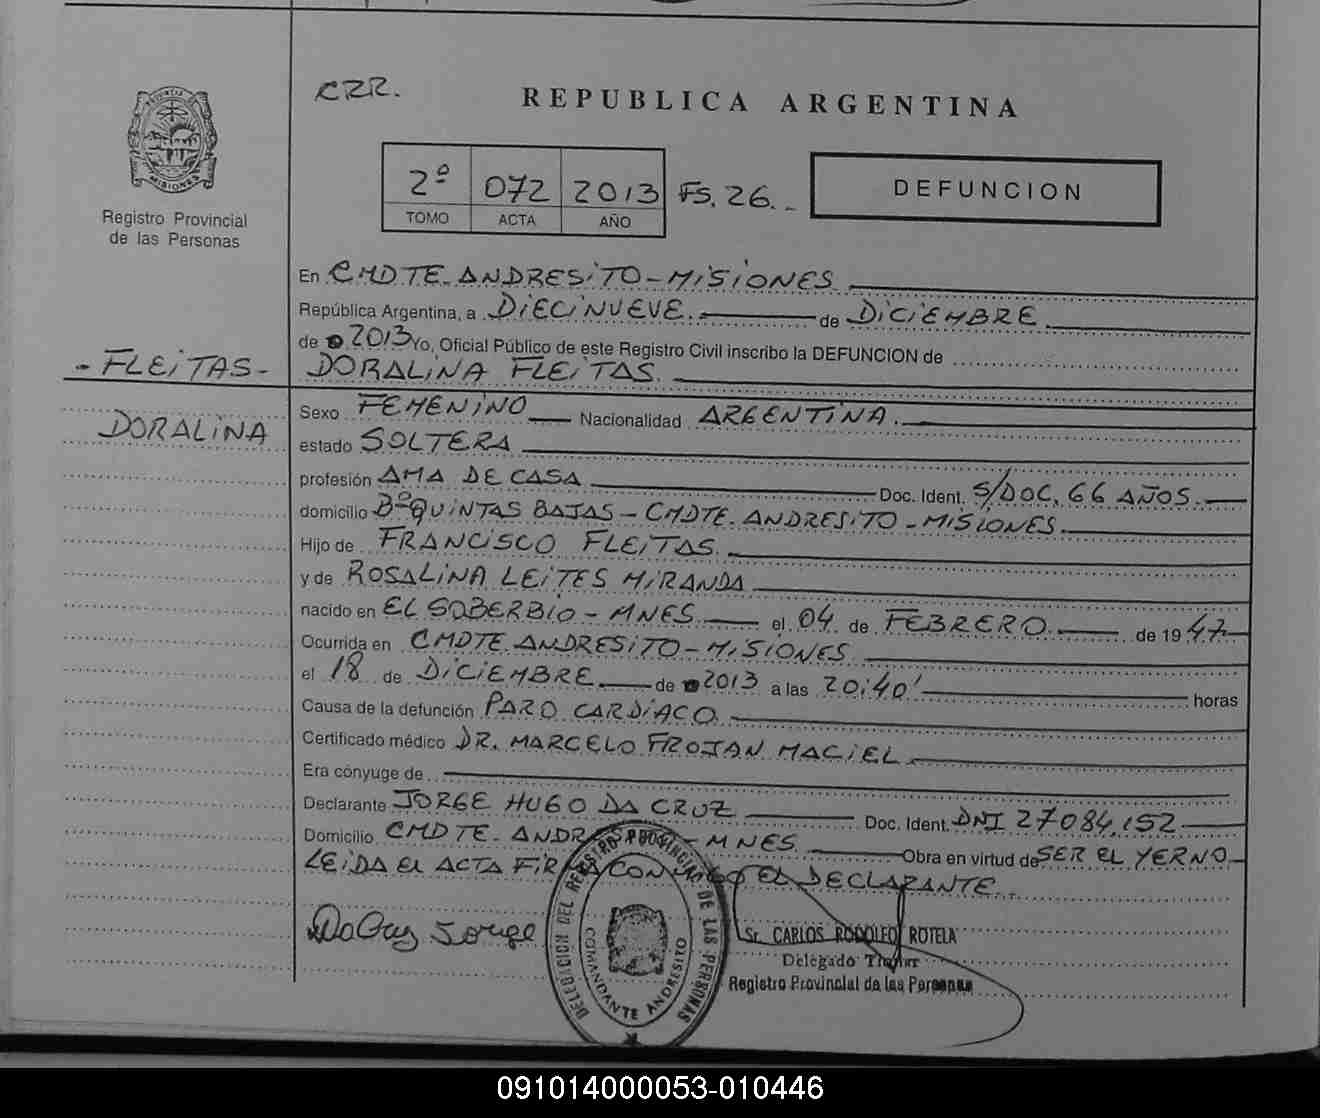 CRR.
REPUBLICA ARGENTINA
MISIONES
Registro Provincial
de las Personas
2º 072 2013 Fs. 26.
TOMO ACTA AÑO
DEFUNCION
En CMDTE. ANDRESITO - MISIONES
República Argentina, a DIECINUEVE. de DICIEMBRE
de 2013 Yo, Oficial Público de este Registro Civil inscribo la DEFUNCION de
- FLEITAS - DORALINA FLEITAS.
Sexo FEMENINO Nacionalidad ARGENTINA.
DORALINA
estado SOLTERA
profesión AMA DE CASA Doc. Ident. S/DOC. 66 AÑOS.
domicilio Bº QUINTAS BAJAS - CMDTE. ANDRESITO - MISIONES
Hijo de FRANCISCO FLEITAS.
y de ROSALINA LEITES MIRANDA
nacido en EL SOBERBIO - MNES. el 04 de FEBRERO. de 1947
Ocurrida en CMDTE ANDRESITO - MISIONES
el 18 de DICIEMBRE. de 2013 a las 20:40' horas
Causa de la defunción PARO CARDIACO.
Certificado médico DR. MARCELO FROJAN MACIEL
Era cónyuge de
Declarante JORGE HUGO DA CRUZ Doc. Ident. DNI 27084.152
Domicilio CMDTE. ANDRESITO - MNES. Obra en virtud de SER EL YERNO
LEIDA EL ACTA FIRMA CONMIGO EL DECLARANTE.
Da Cruz Jorge
DELEGACION DEL REGISTRO PROVINCIAL DE LAS PERSONAS
COMANDANTE ANDRESITO
Sr. CARLOS RODOLFO ROTELA
Delegado Titular
Registro Provincial de las Personas
091014000053-010446